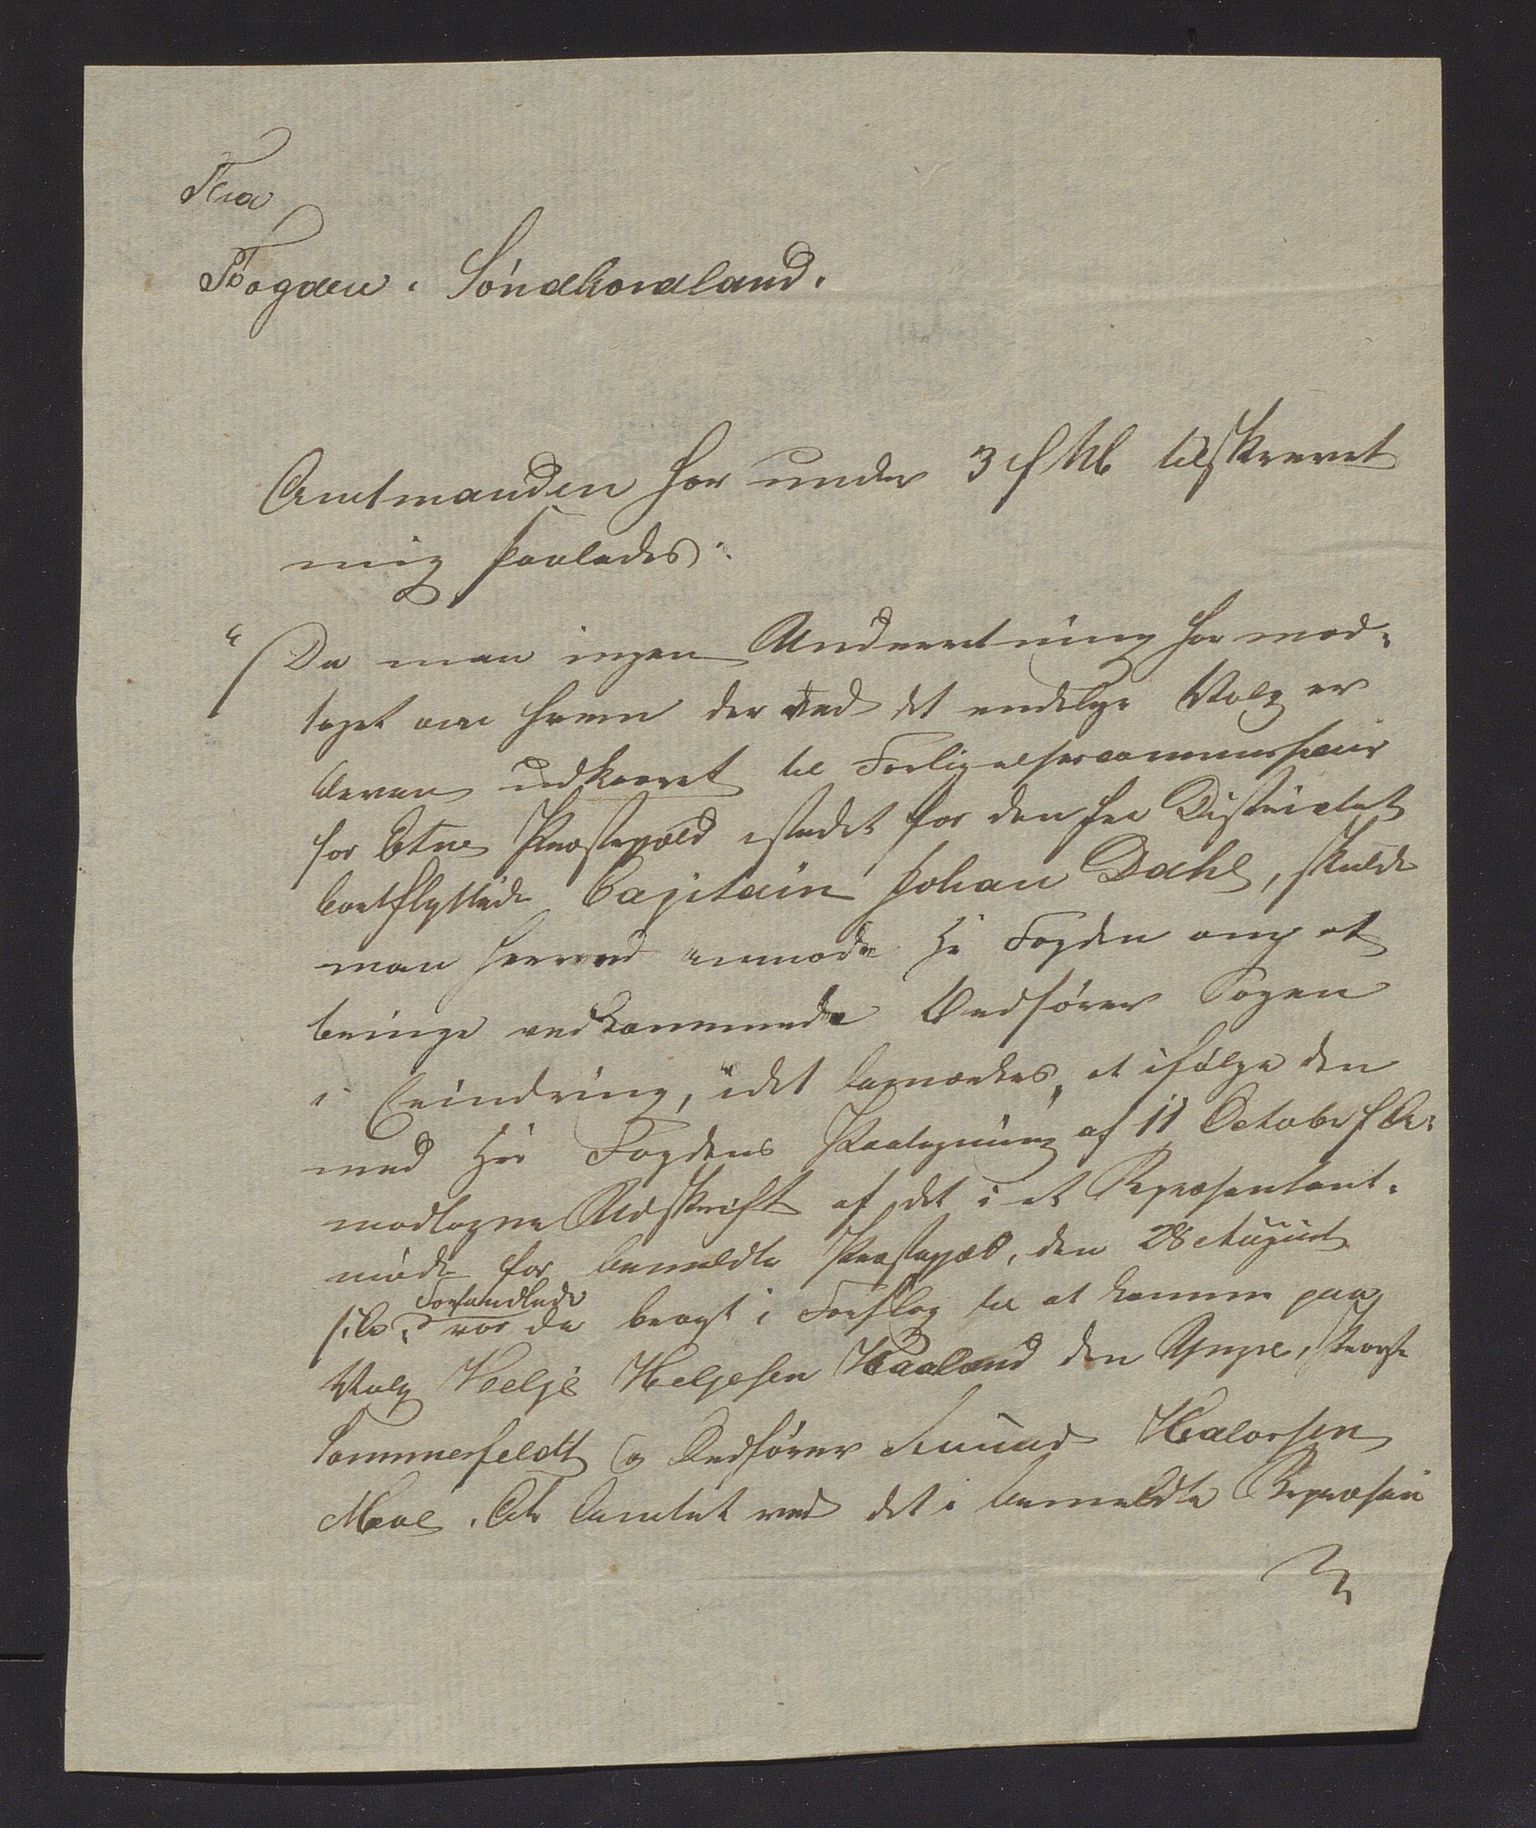 Fra
Fogden i Søndhordland.
Amtmanden har under 3 d M tilskrevet
mig saaledes:
"Da man ingen Underretning har mod-
taget om hvem der ved det endelige Valg er
bleven udkaaret til Forligelsescommissair
for Etne Præstegæld istedet for den fra Districtet
bortflyttede Capitain Johan Dahl, skulde
man herved anmode Hr Fogden om at
bringe vedkommende Ordfører Sagen
i Erindring, idet bemærkes, at ifølge den
med Hr Fogdens Paategning af 11 October f A.
modtagne Udskrift af det i et Repræsentant-
møde for bemeldte Præstegæld, den 28 August
s. A. Forhandlede var da bragt i Forslag til at komme paa
Valg Helge Helgesen Haaland den Yngre,
Sommerfeldt og Ordfører Amund Halorsen
Moe. At Amtet ved det i bemeldte Repræsen